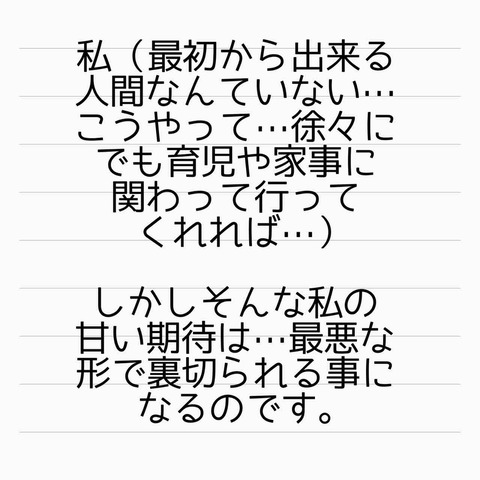 私（最初から出来る
人間なんていない…
こうやって…徐々に
でも育児や家事に
関わって行って
くれれば…）
しかしそんな私の
甘い期待は…最悪な
形で裏切られる事に
なるのです。